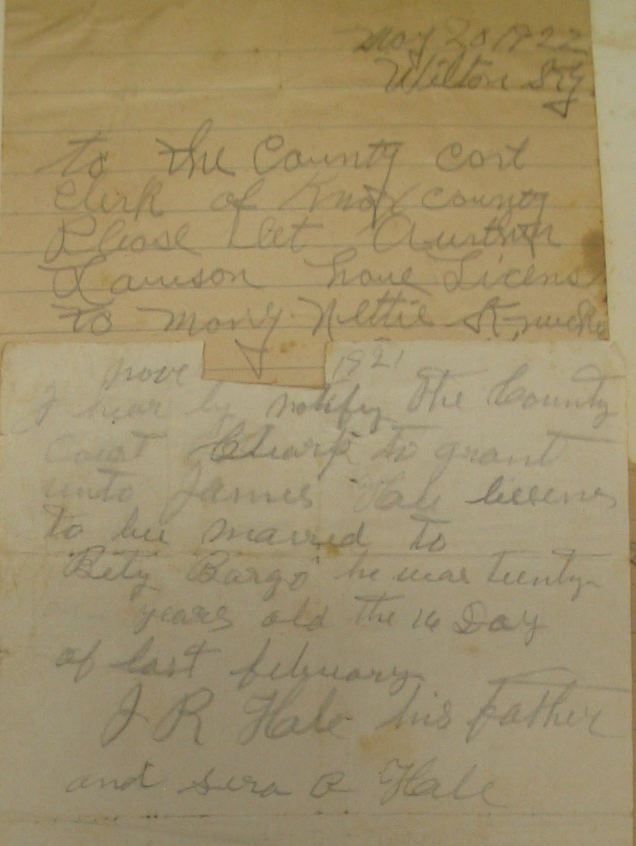 May 20 1922
Wilton Ky
to the County cort
Clerk of Knox County
Please Let
Lawson have Licens
to Mary Nettie
nove 1921
I hear by notify the County
Court to grant
unto James Hale
to be married to
Bety Bargo he was twenty
years old the 16 Day
of last febuary
J R Hale his father
and Sera A Hale